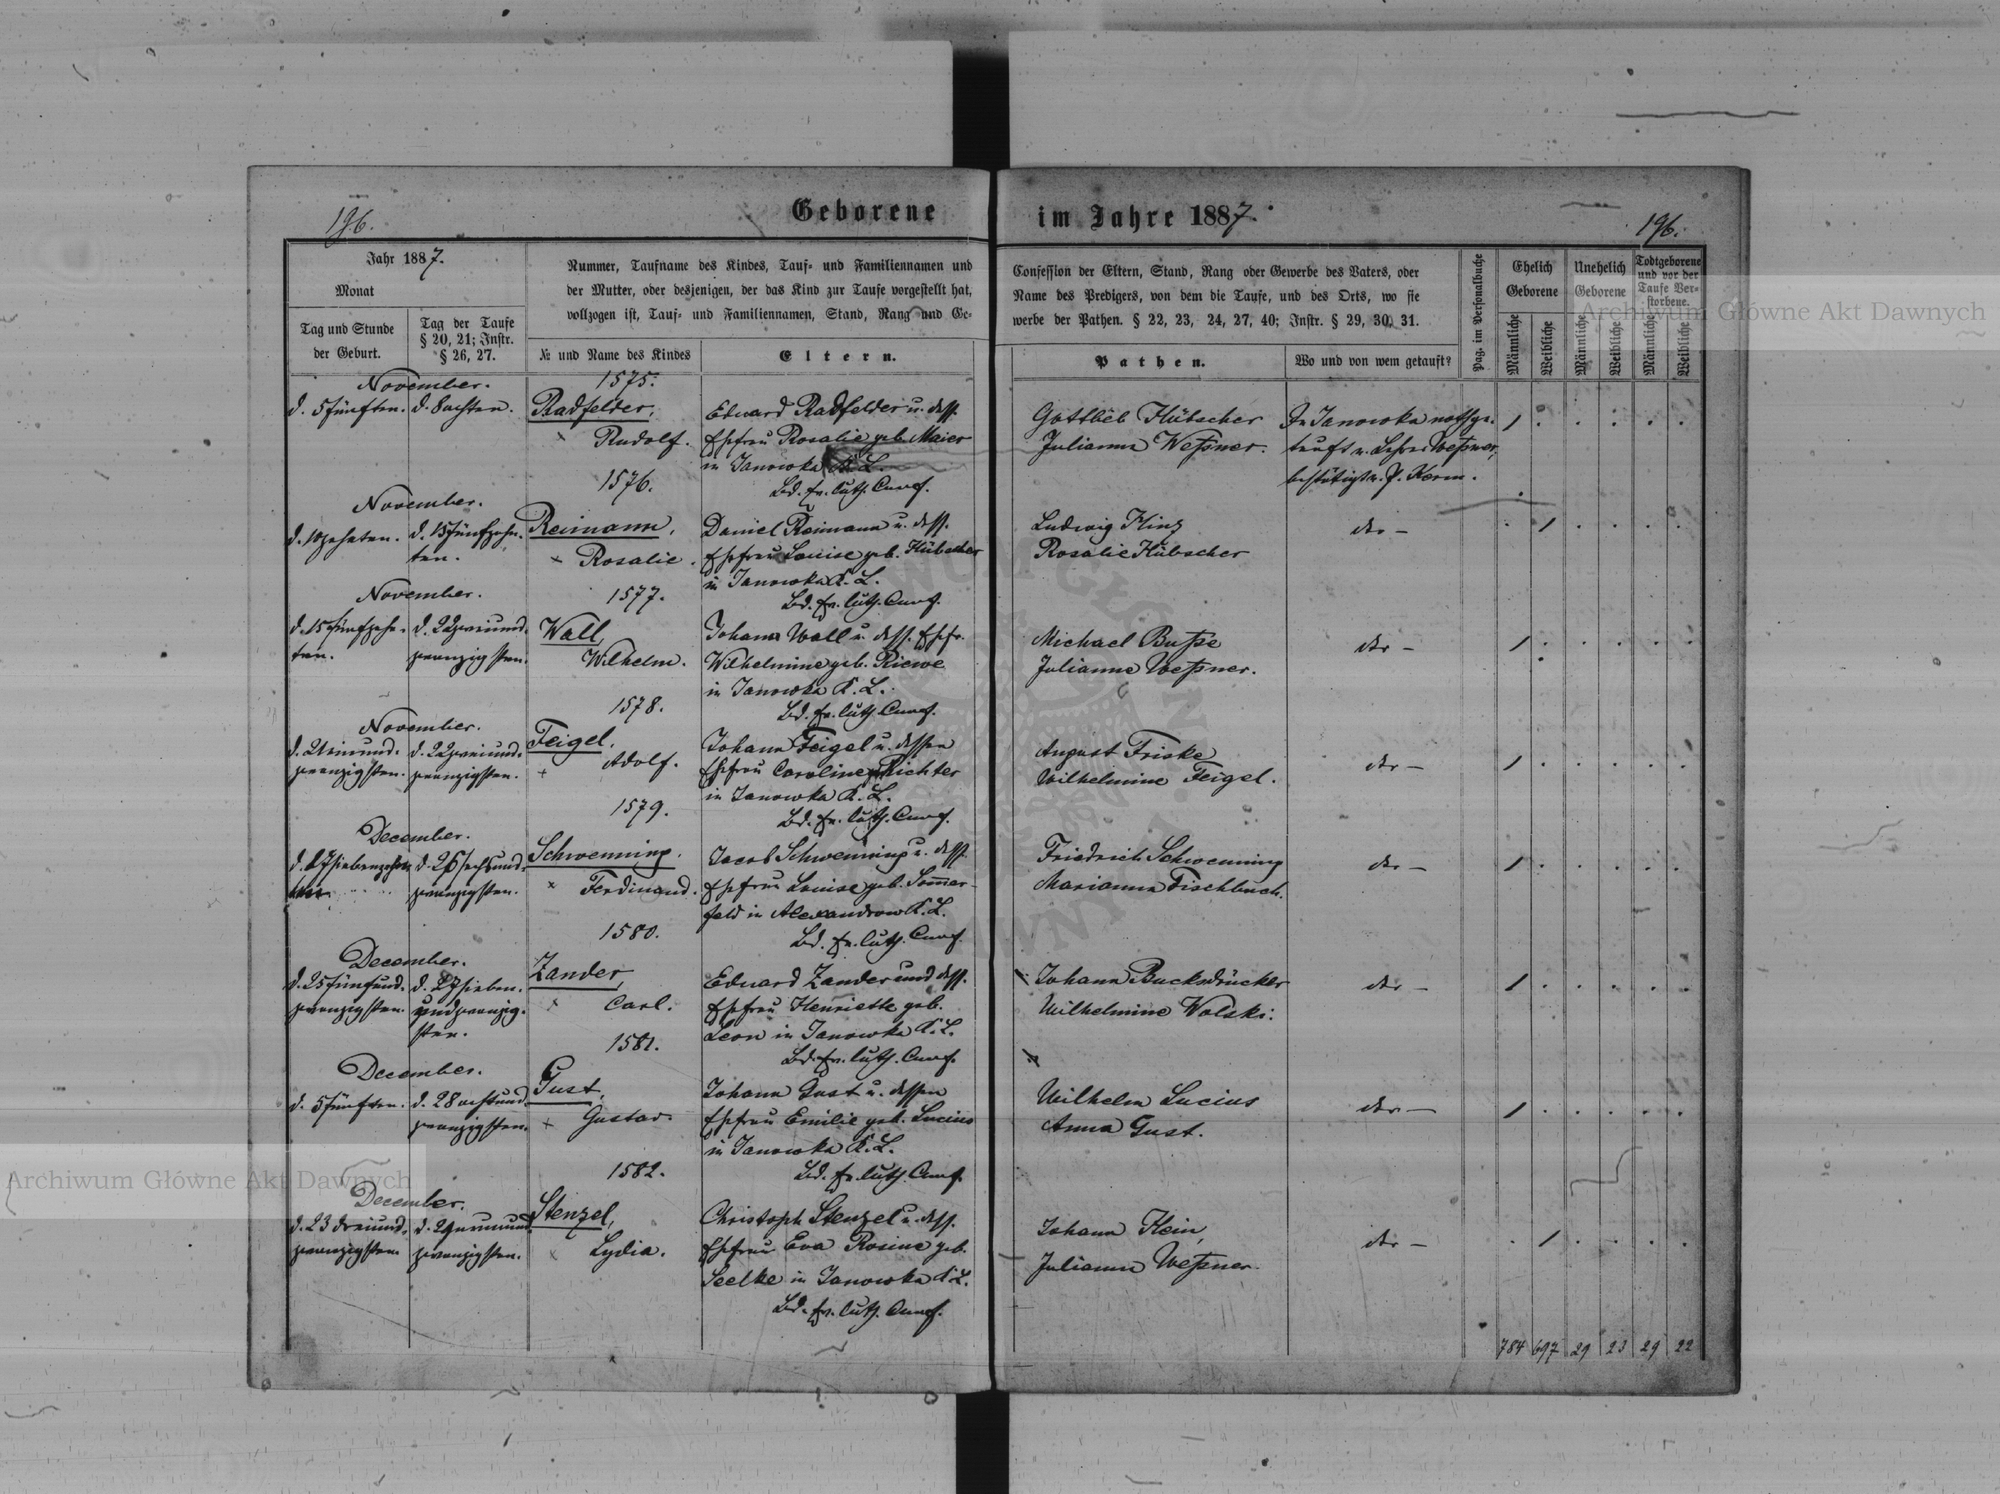 196.
Geborene
im Jahre 1887.
196.
Jahr 1887.
Monat
Tag und Stunde
der Geburt.
Tag der Taufe
§ 20, 21; Instr.
§ 26, 27.
Nummer, Taufname des Kindes, Tauf- und Familiennamen und
der Mutter, oder desjenigen, der das Kind zur Taufe vorgestellt hat,
vollzogen ist, Tauf- und Familiennamen, Stand, Rang und Ge-
№ und Name des Kindes
Eltern.
Confession der Eltern, Stand, Rang oder Gewerbe des Vaters, oder
Name des Predigers, von dem die Taufe, und des Orts, wo sie
werbe der Pathen. § 22, 23, 24, 27, 40; Instr. § 29, 30, 31.
Pathen.
Wo und von wem getauft?
Pag. im Personalbuche
Ehelich
Geborene
Unehelich
Geborene
Todtgeborene
und vor der
Taufe Ver-
storbene.
Männliche
Weibliche
Männliche
Weibliche
Männliche
Weibliche
November.
d. 5 fünften.
d. 8 achten.
1575.
Radfelder,
Rudolf.
Eduard Radfelder u. dess.
Ehefrau Rosalie geb. Maier
in Janowka K. L.
Bd. ev. luth. Conf.
Gottlieb Hübscher
Julianna Weßner.
In Janowka nothge-
tauft v. Lehrer Weßner,
bestätigt v. P. Kerm.
November.
d. 10 zehnten.
d. 15 fünfzehn-
ten.
1576.
Reimann,
Rosalie.
Daniel Reimann u. dess.
Ehefrau Louise geb. Hübscher
in Janowka K. L.
Bd. ev. luth. Conf.
Ludwig Hinz
Rosalie Hübscher
dto –
November.
d. 15 fünfzehn-
ten.
d. 22 zweiund-
zwanzigsten.
1577.
Wall,
Wilhelm.
Johann Wall u. dess. Ehefr.
Wilhelmine geb. Riewe
in Janowka K. L.
Bd. ev. luth. Conf.
Michael Buße
Julianne Weßner.
dto –
November.
d. 21 einund-
zwanzigsten.
d. 22 zweiund-
zwanzigsten.
1578.
Feigel,
Adolf.
Johann Feigel u. dessen
Ehefrau Caroline g. Richter
in Janowka K. L.
Bd. ev. luth. Conf.
August Friske
Wilhelmine Feigel.
dto –
December.
d. 17 siebenzehn
ten
d. 26 sechsund-
zwanzigsten.
1579.
Schwenning,
Ferdinand.
Jacob Schwenning u. dess.
Ehefrau Louise geb. Sommer-
feld in Alexandrow K. L.
Bd. ev. luth. Conf.
Friedrich Schwenning
Marianna Fischbuch.
dto –
December.
d. 25 fünfund-
zwanzigsten.
d. 27 sieben-
undzwanzig-
sten.
1580.
Zander,
Carl.
Eduard Zander und dess.
Ehefrau Henriette geb.
Leon in Janowka K. L.
Bd. ev. luth. Conf.
Johann Bucksdrücker
Wilhelmine Wolski.
dto –
December.
d. 5 fünften.
d. 28 achtund-
zwanzigsten.
1581.
Gust,
Gustav.
Johann Gust u. dessen
Ehefrau Emilie geb. Lucius
in Janowka K. L.
Bd. ev. luth. Conf.
Wilhelm Lucius
Anna Gust.
dto –
December.
d. 23 dreiund-
zwanzigsten
d. 29 neunund-
zwanzigsten.
1582.
Stenzel,
Lydia.
Christoph Stenzel u. dess.
Ehefrau Eva Rosine geb.
Seelke in Janowka K. L.
Bd. ev. luth. Conf.
Johann Klein,
Julianna Weßner.
dto –
784 697 29 23 29 22
Archiwum Główne Akt Dawnych
Archiwum Główne Akt Dawnych